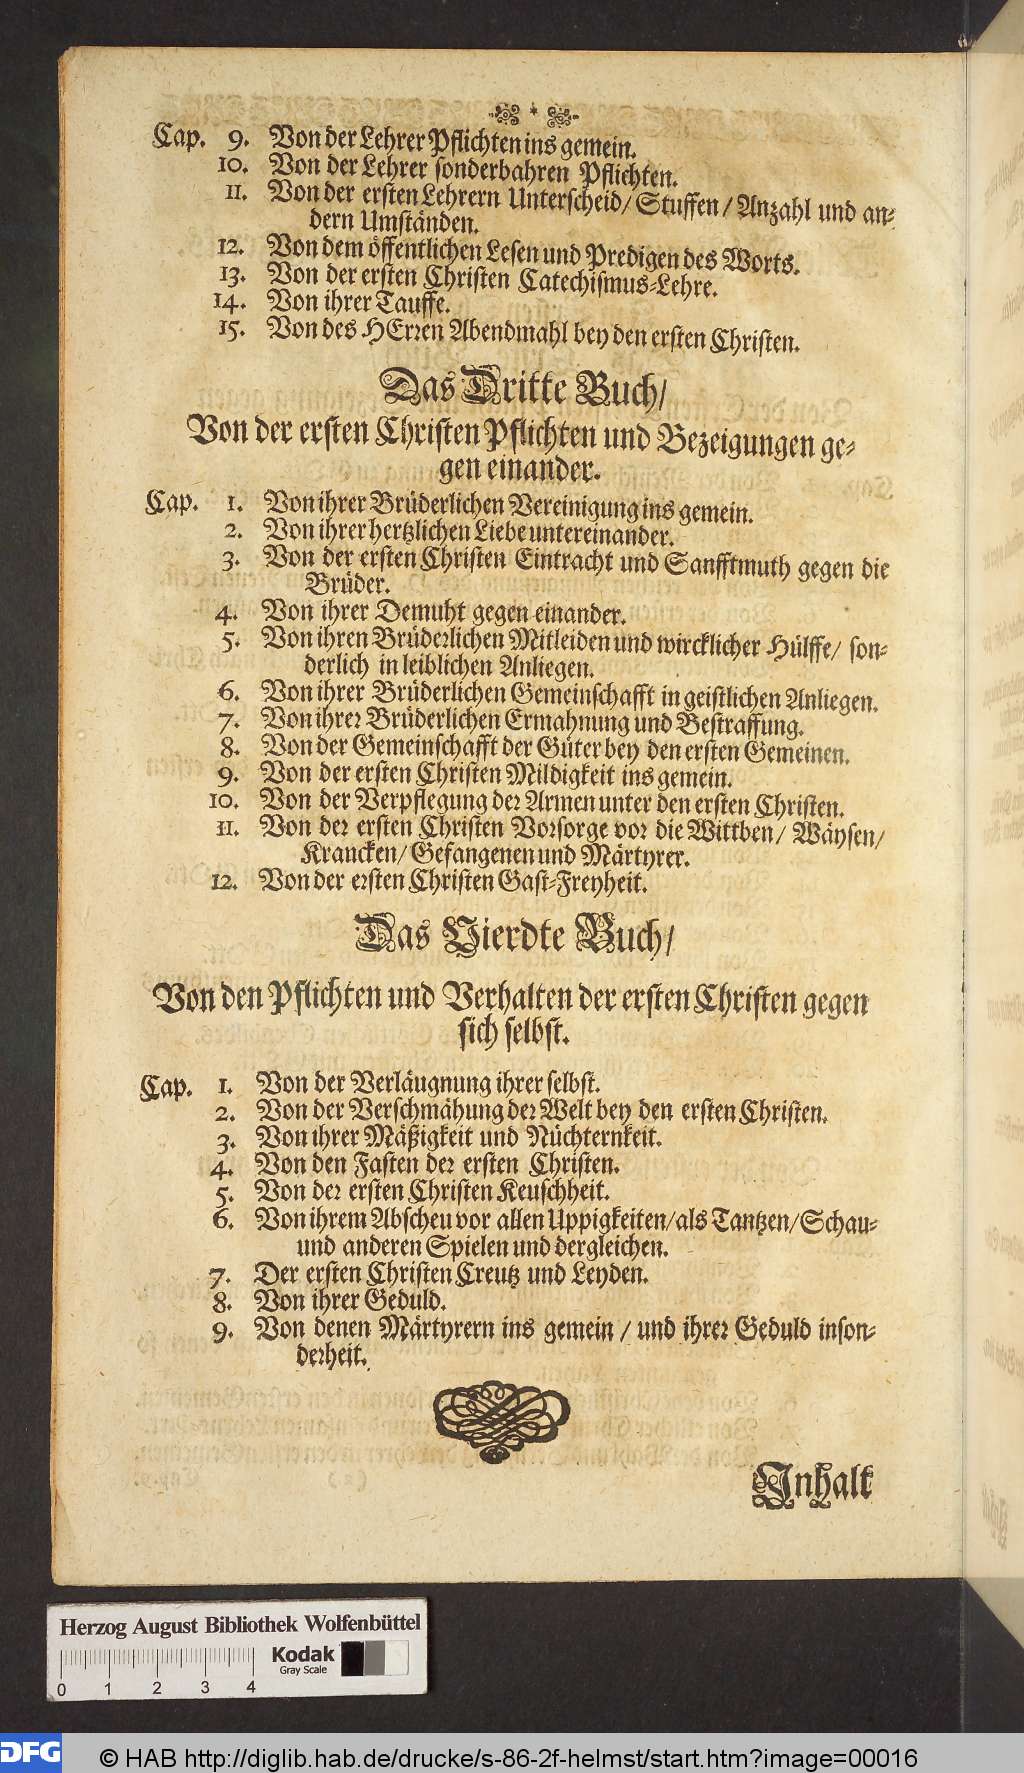 Cap. 9. Von der Lehrer Pflichten ins gemein.
10. Von der Lehrer sonderbahren Pflichten.
11. Von der ersten Lehrern Unterscheid/ Stuffen/ Anzahl und an-
dern Umständen.
12. Von dem öffentlichen Lesen und Predigen des Worts.
13. Von der ersten Christen Catechismus-Lehre.
14. Von ihrer Tauffe.
15. Von des HErren Abendmahl bey den ersten Christen.
Das Dritte Buch/
Von der ersten Christen Pflichten und Bezeigungen ge-
gen einander.
Cap. 1. Von ihrer Brüderlichen Vereinigung ins gemein.
2. Von ihrer hertzlichen Liebe untereinander.
3. Von der ersten Christen Eintracht und Sanfftmuth gegen die
Brüder.
4. Von ihrer Demuht gegen einander.
5. Von ihren Brüderlichen Mitleiden und wircklicher Hülffe/ son-
derlich in leiblichen Anliegen.
6. Von ihrer Brüderlichen Gemeinschafft in geistlichen Anliegen.
7. Von ihrer Brüderlichen Ermahnung und Bestraffung.
8. Von der Gemeinschafft der Güter bey den ersten Gemeinen.
9. Von der ersten Christen Mildigkeit ins gemein.
10. Von der Verpflegung der Armen unter den ersten Christen.
11. Von der ersten Christen Vorsorge vor die Wittben/ Wäysen/
Krancken/ Gefangenen und Märtyrer.
12. Von der ersten Christen Gast-Freyheit.
Das Vierdte Buch/
Von den Pflichten und Verhalten der ersten Christen gegen
sich selbst.
Cap. 1. Von der Verläugnung ihrer selbst.
2. Von der Verschmähung der Welt bey den ersten Christen.
3. Von ihrer Mäßigkeit und Nüchternkeit.
4. Von den Fasten der ersten Christen.
5. Von der ersten Christen Keuschheit.
6. Von ihrem Abscheu vor allen Uppigkeiten/als Tantzen/Schau-
und anderen Spielen und dergleichen.
7. Der ersten Christen Creutz und Leyden.
8. Von ihrer Geduld.
9. Von denen Märtyrern ins gemein / und ihrer Geduld inson-
derheit.
Inhalt
Herzog August Bibliothek Wolfenbüttel
Kodak
Gray Scale
0 1 2 3 4
DFG © HAB http://diglib.hab.de/drucke/s-86-2f-helmst/start.htm?image=00016